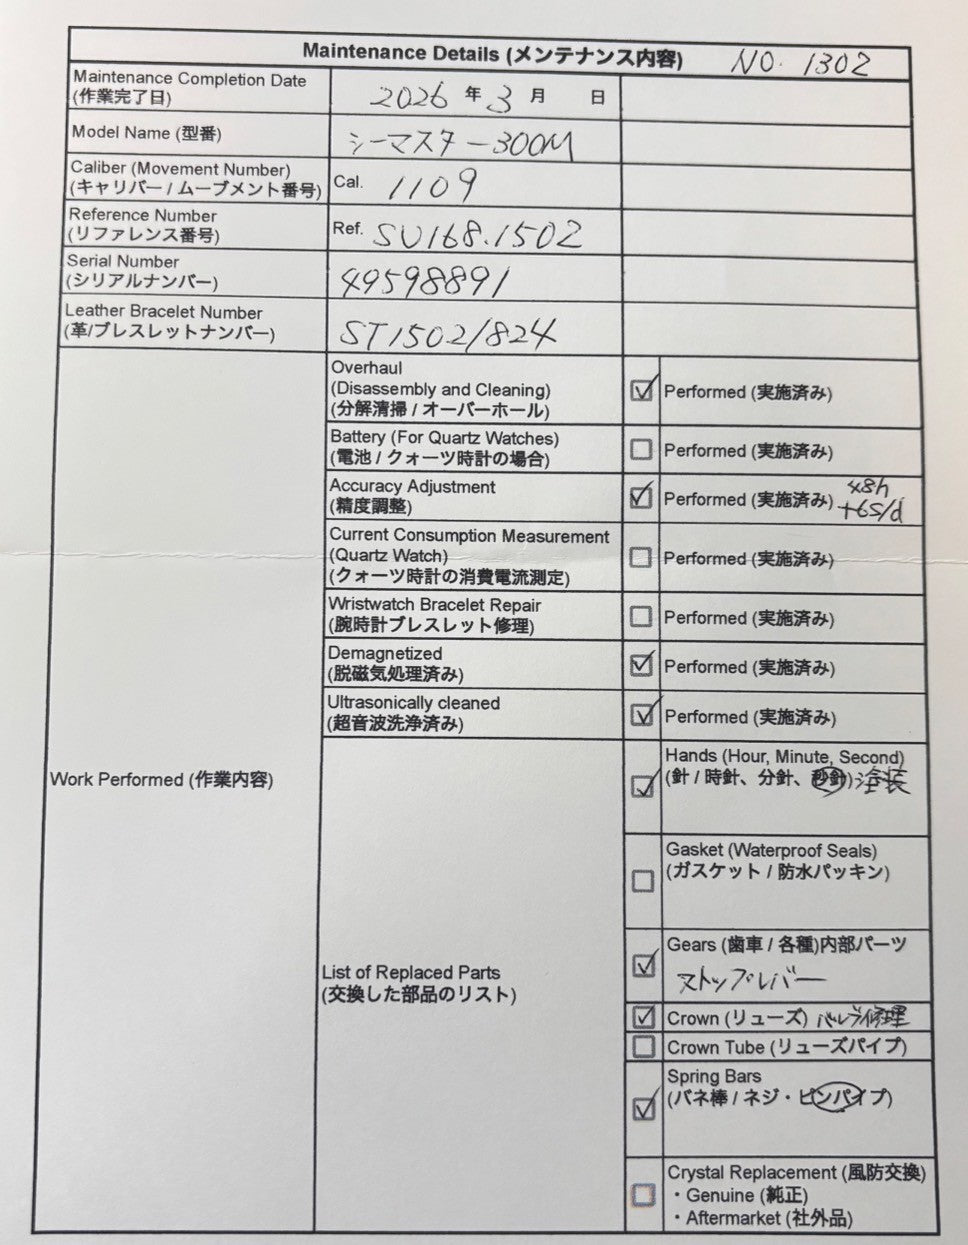 Maintenance Details (メンテナンス内容) NO. 1302
Maintenance Completion Date
(作業完了日)
2026 年 3 月 日
Model Name (型番)
シーマスター300M
Caliber (Movement Number)
(キャリバー / ムーブメント番号)
Cal. 1109
Reference Number
(リファレンス番号)
Ref. SU168.1502
Serial Number
(シリアルナンバー)
49598891
Leather Bracelet Number
(革/ブレスレットナンバー)
ST1502/824
Work Performed (作業内容)
Overhaul
(Disassembly and Cleaning)
(分解清掃 / オーバーホール)
Performed (実施済み)
Battery (For Quartz Watches)
(電池 / クォーツ時計の場合)
Performed (実施済み)
Accuracy Adjustment
(精度調整)
Performed (実施済み) 48h
+6s/d
Current Consumption Measurement
(Quartz Watch)
(クォーツ時計の消費電流測定)
Performed (実施済み)
Wristwatch Bracelet Repair
(腕時計ブレスレット修理)
Performed (実施済み)
Demagnetized
(脱磁気処理済み)
Performed (実施済み)
Ultrasonically cleaned
(超音波洗浄済み)
Performed (実施済み)
List of Replaced Parts
(交換した部品のリスト)
Hands (Hour, Minute, Second)
(針 / 時針、分針、秒針) 塗装
Gasket (Waterproof Seals)
(ガスケット / 防水パッキン)
Gears (歯車 / 各種)内部パーツ
ストップレバー
Crown (リューズ) 修理
Crown Tube (リューズパイプ)
Spring Bars
(バネ棒 / ネジ・ピンパイプ)
Crystal Replacement (風防交換)
・Genuine (純正)
・Aftermarket (社外品)